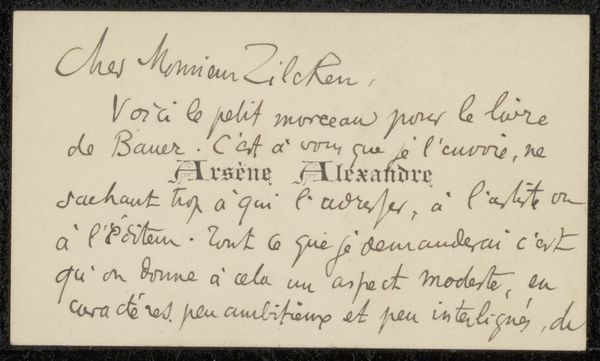 Cher Monsieur Zilcken,
Voici le petit morceau pour le livre
de Bauer. C'est à vous que je l'envoie, ne
Arsène Alexandre
sachant trop à qui l'adresser, à l'artiste ou
à l'Éditeur. Tout ce que je demanderai c'est
qu'on donne à cela un aspect modeste, en
caractères peu ambitieux et peu interlignés, de